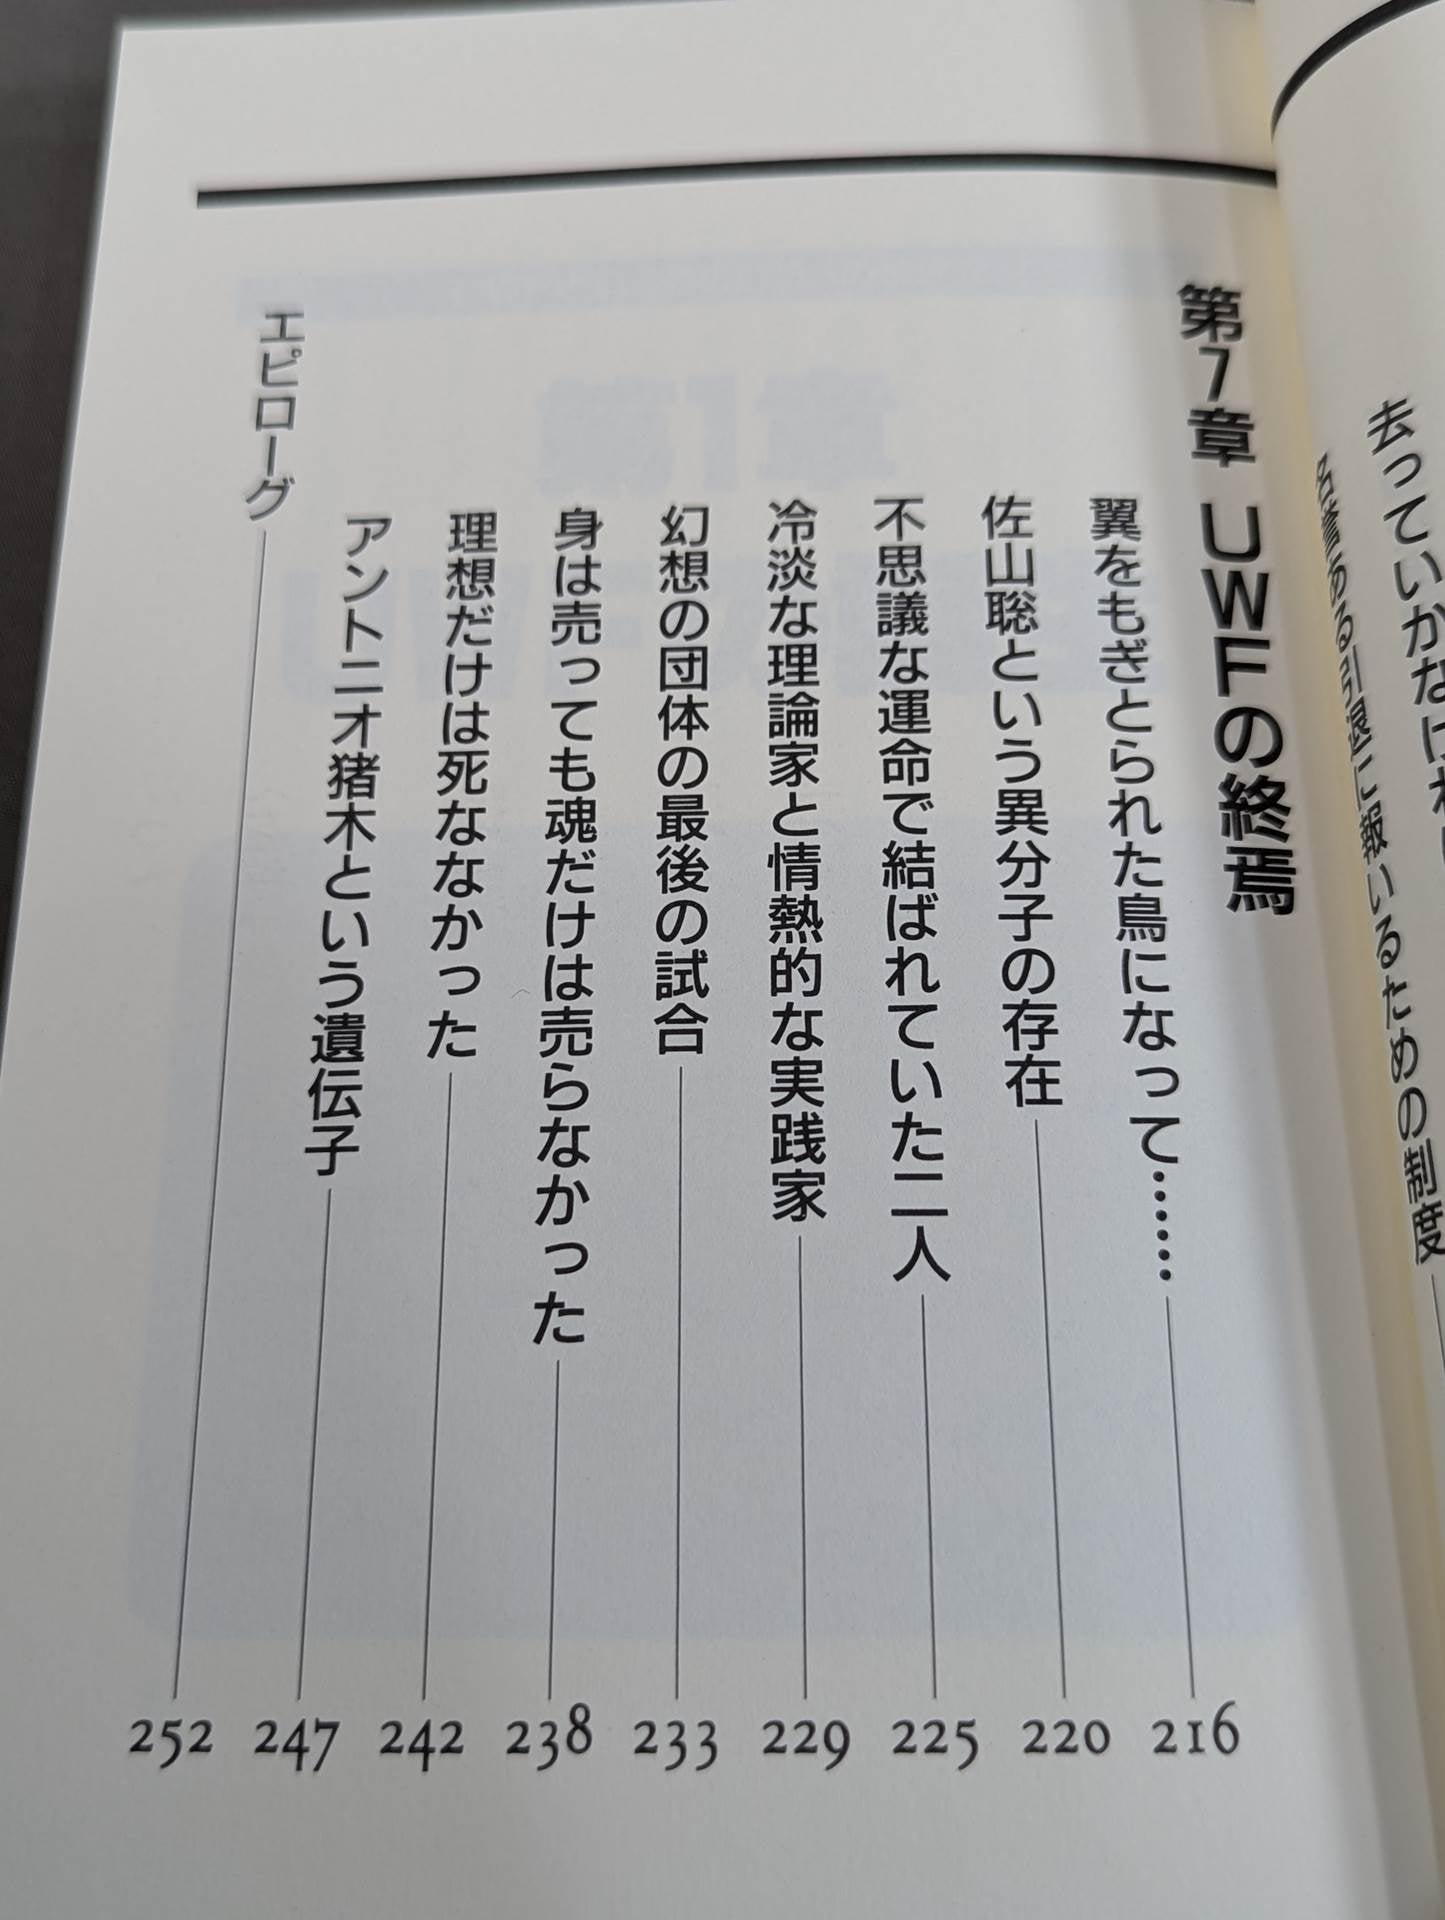 去っていかなけれ
名誉ある引退に報いるための制度
第7章 UWFの終焉
翼をもぎとられた鳥になって…… 216
佐山聡という異分子の存在 220
不思議な運命で結ばれていた二人 225
冷淡な理論家と情熱的な実践家 229
幻想の団体の最後の試合 233
身は売っても魂だけは売らなかった 238
理想だけは死ななかった 242
アントニオ猪木という遺伝子 247
エピローグ 252